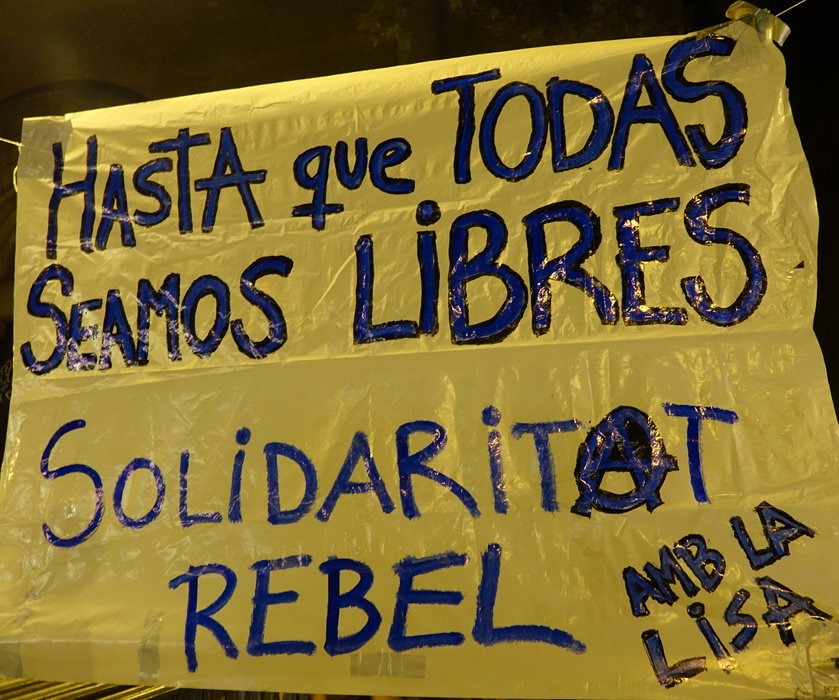 HASTA que TODAS
SEAMOS LiBRES
SOLiDARiTAT
REBEL
AMB LA
LiSA